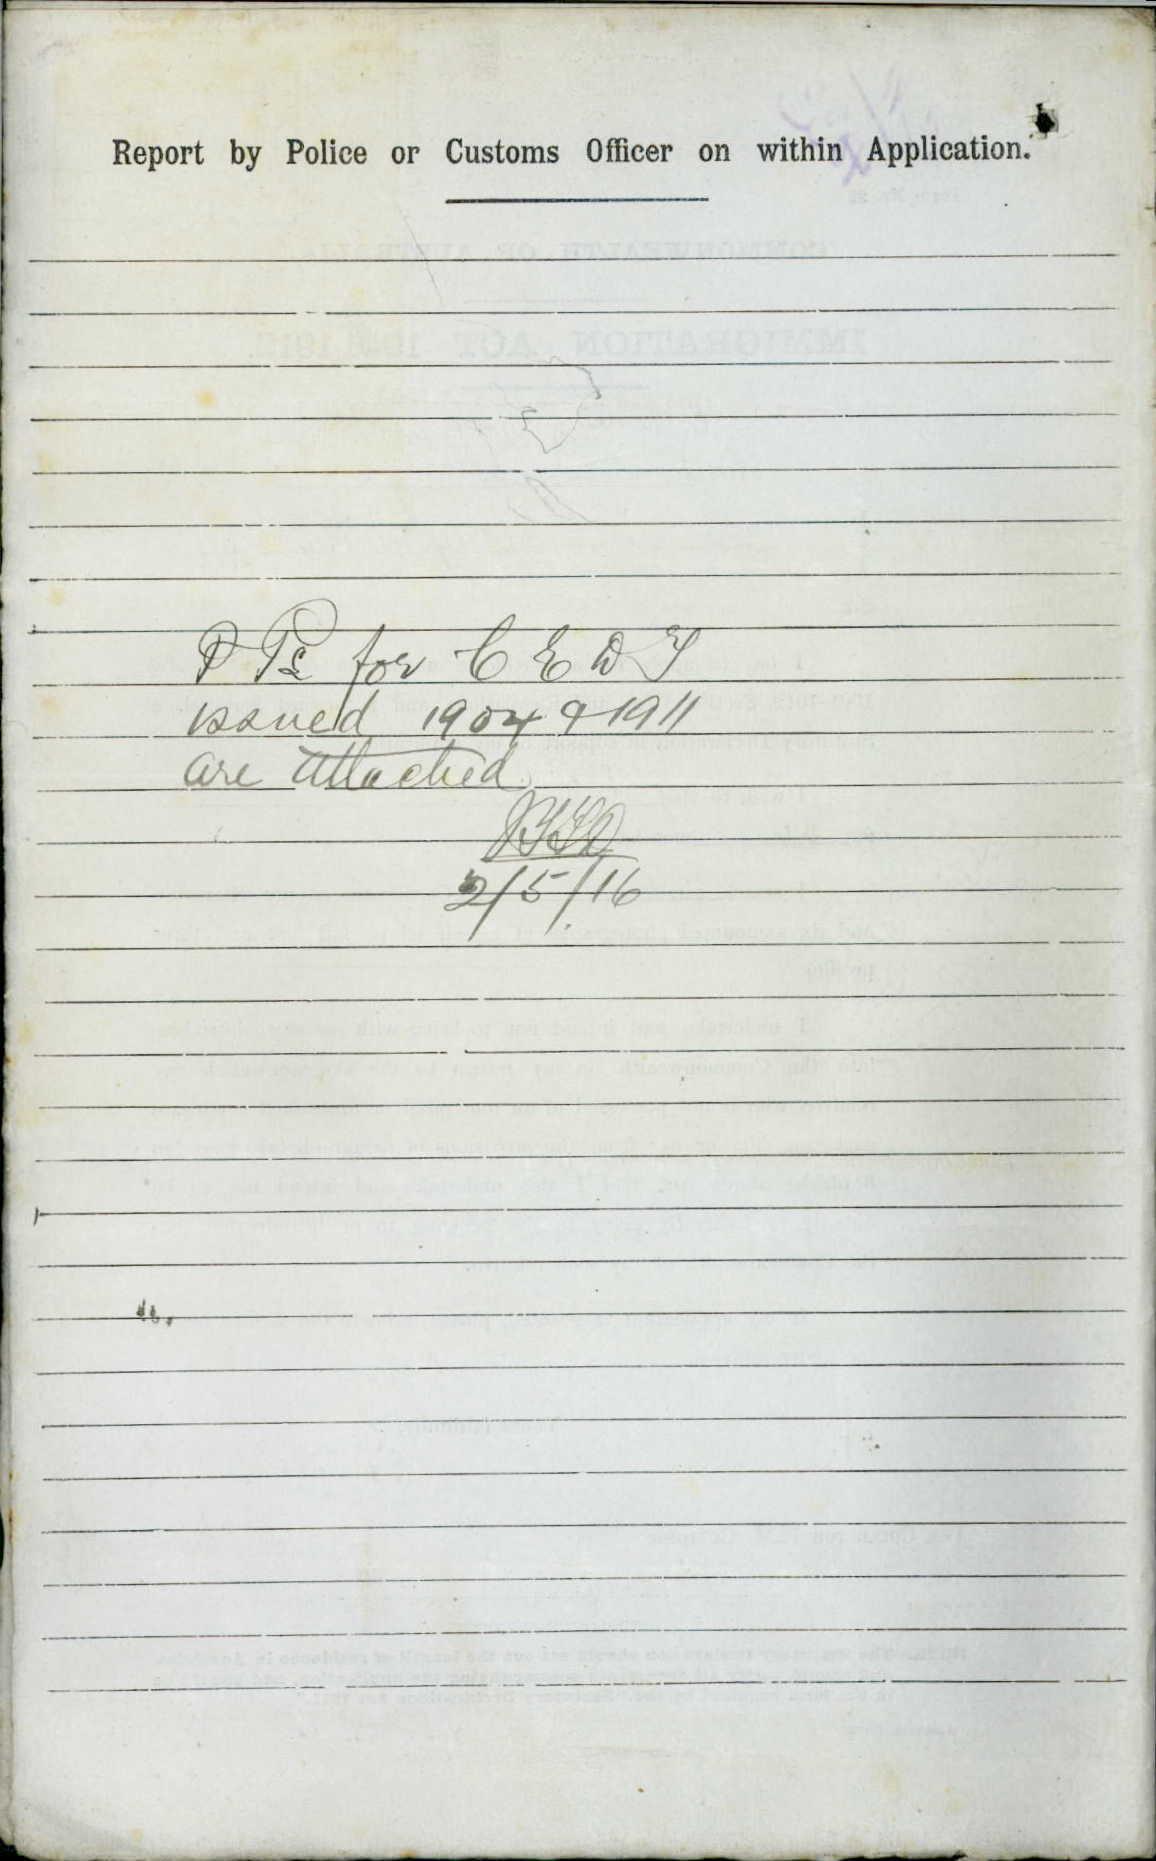 Report by Police or Customs Officer on within Application.
P Ps for C E D T
issued 1904 & 1911
are attached
2/5/16